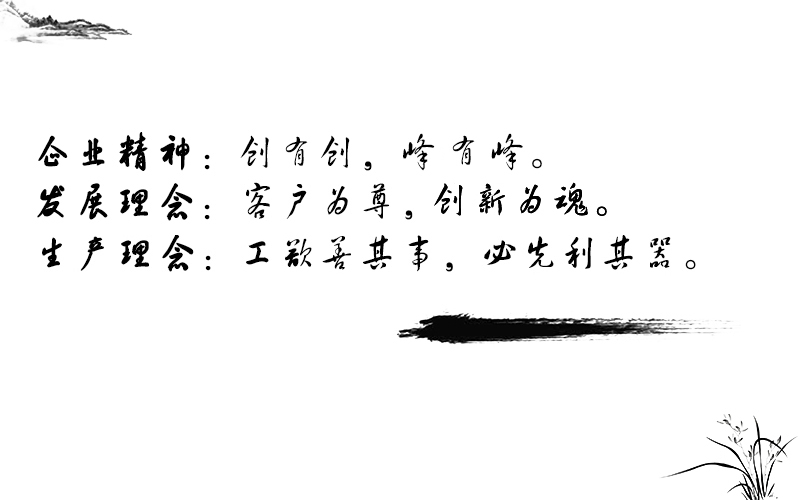 企业精神：创有创，峰有峰。
发展理念：客户为尊，创新为魂。
生产理念：工欲善其事，必先利其器。